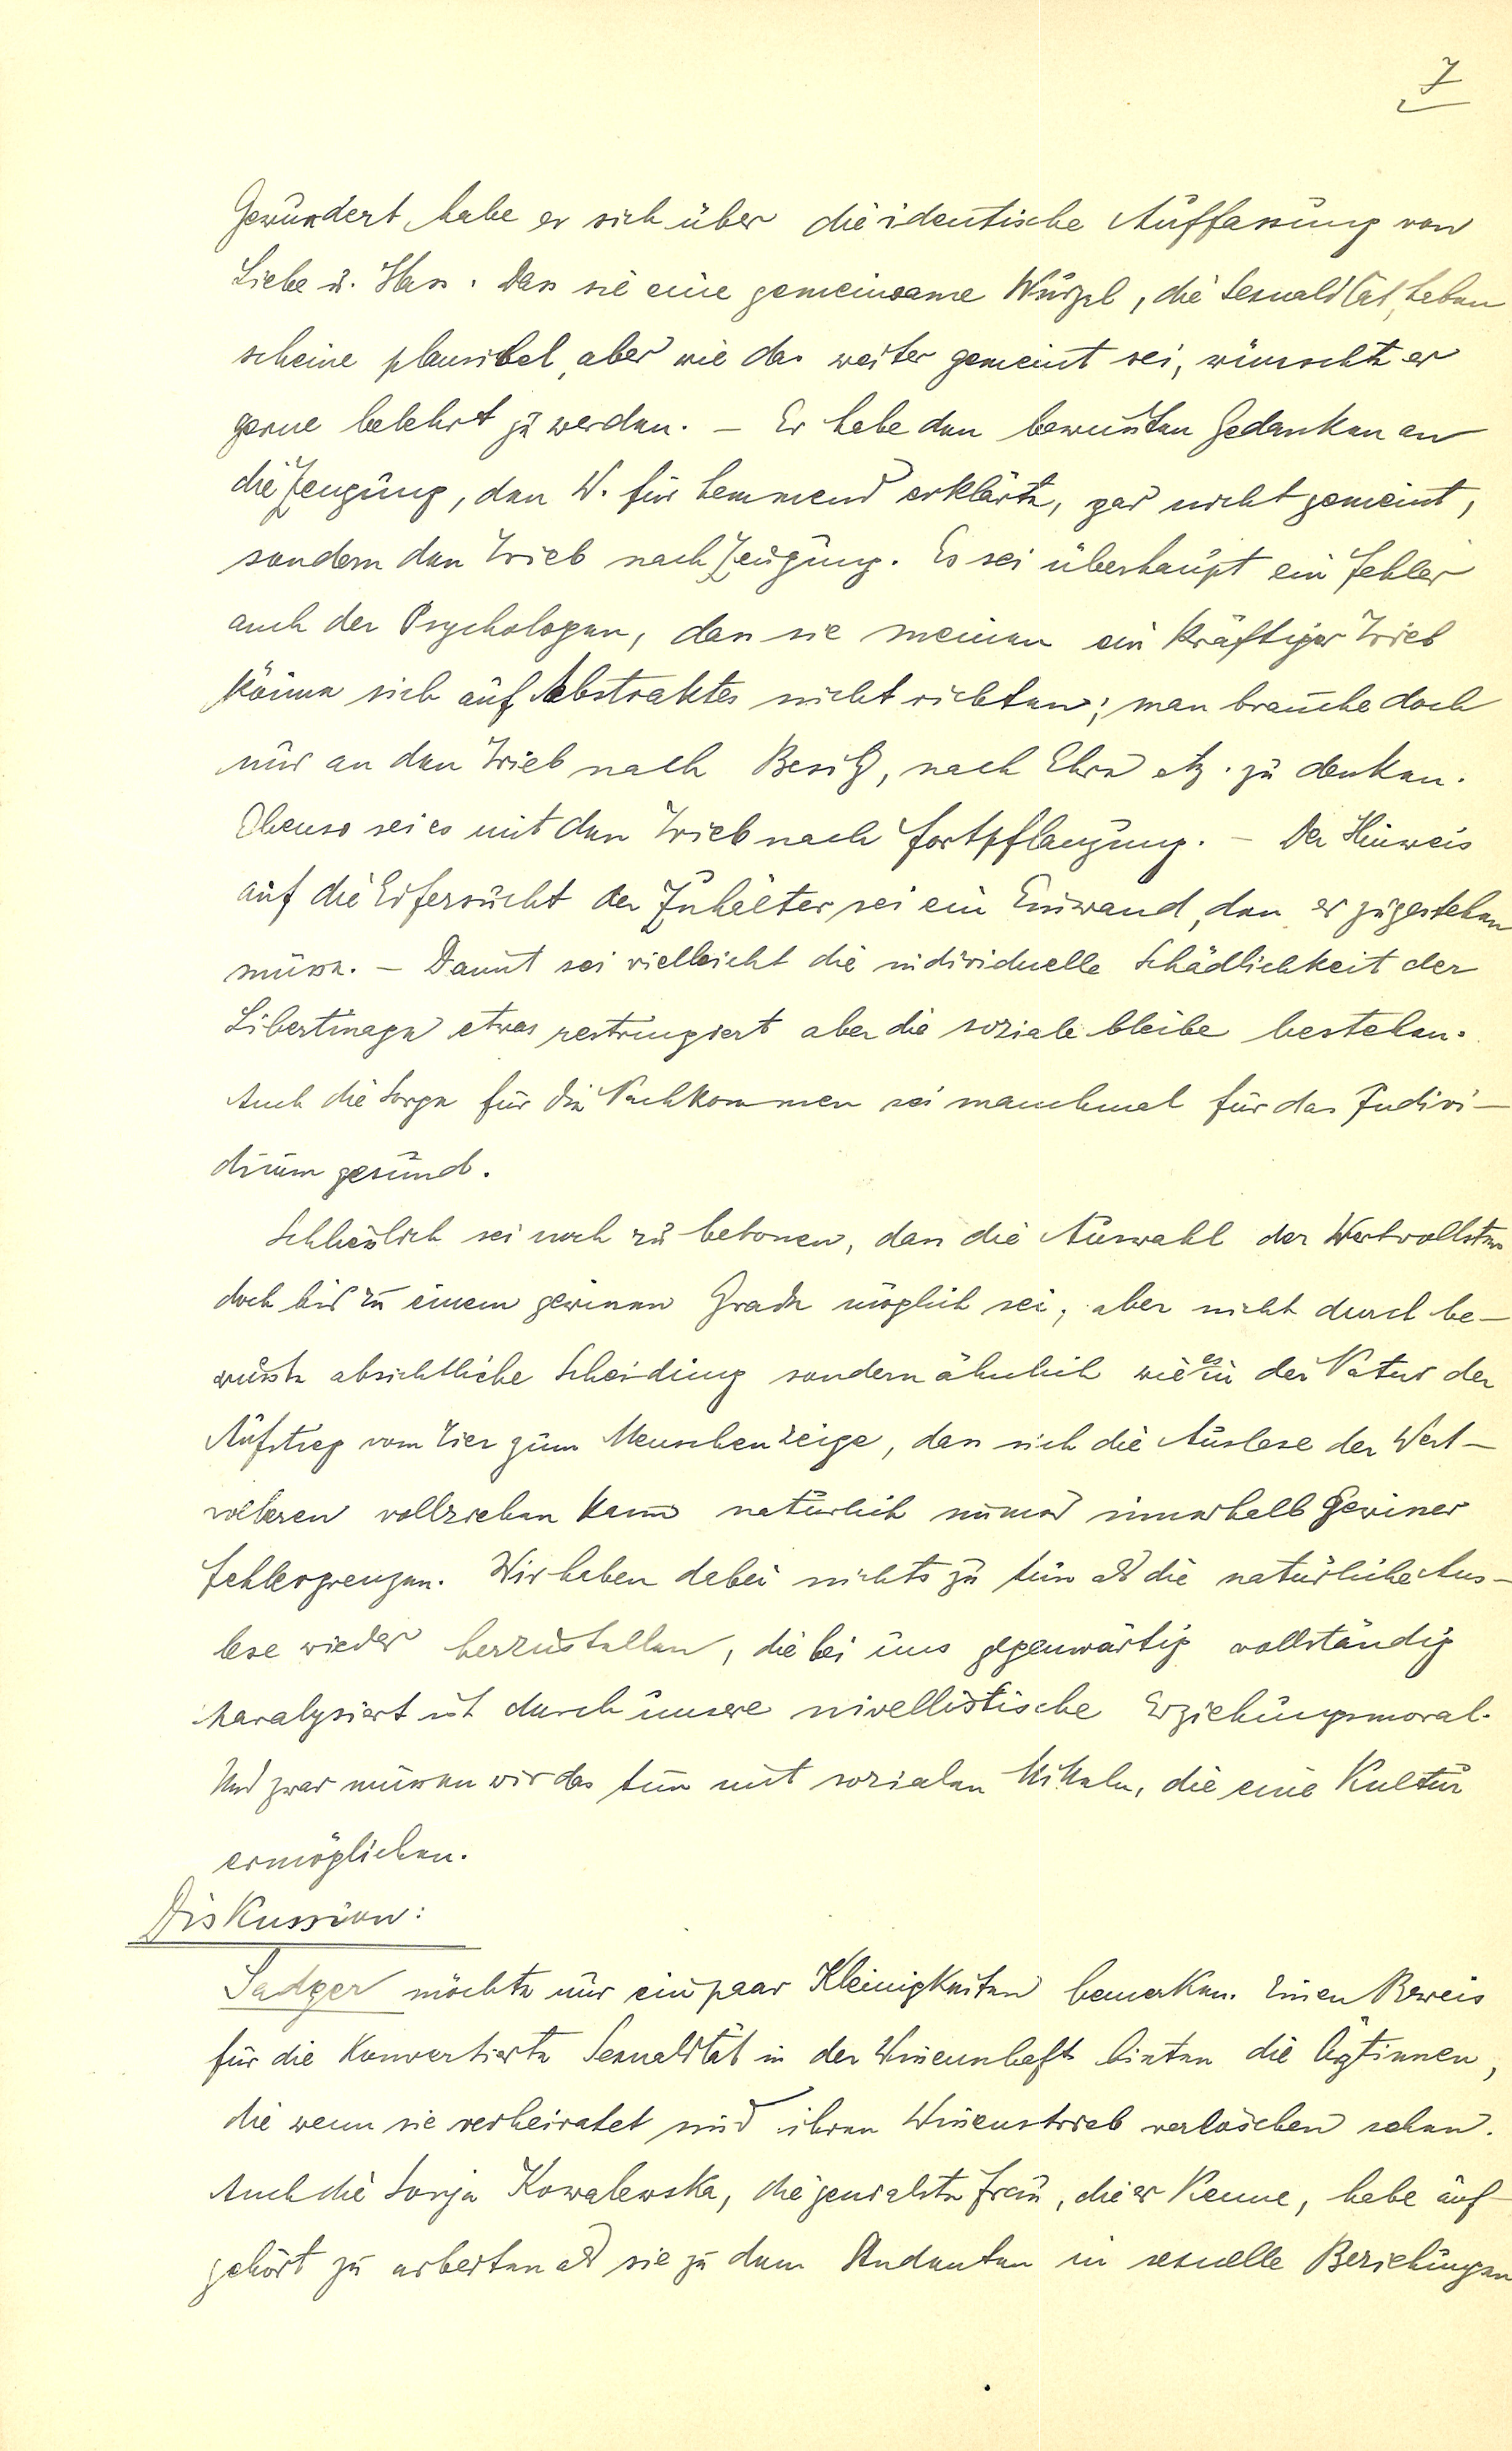 7
Gewundert habe er sich über die identische Auffassung von
Liebe u. Hass. Dass sie eine gemeinsame Wurzel, die Sexualität, haben
scheine plausibel, aber wie das weiter gemeint sei, wünschte er
gerne belehrt zu werden. – Er habe den bewussten Gedanken an
die Zeugung, den W. für hemmend erklärte, gar nicht gemeint,
sondern den Trieb nach Zeugung. Es sei überhaupt ein Fehler
auch der Psychologen, dass sie meinen ein kräftiger Trieb
könne sich auf Abstraktes nicht richten; man brauche doch
nur an den Trieb nach Besitz, nach Ehre etz. zu denken.
Ebenso sei es mit dem Trieb nach Fortpflanzung. – Der Hinweis
auf die Eifersucht der Zuhälter sei ein Einwand, den er zugestehen
müsse. – Damit sei vielleicht die individuelle Schädlichkeit der
Libertinage etwas restringiert aber die soziale bleibe bestehen.
Auch die Sorge für die Nachkommen sei manchmal für das Indivi-
duum gesund.
Schliesslich sei noch zu betonen, dass die Auswahl der Wertvollsten
doch bis zu einem gewissen Grade möglich sei; aber nicht durch be-
wusste absichtliche Scheidung sondern ähnlich wie es in der Natur der
Aufstieg vom Tier zum Menschen zeige, dass sich die Auslese der Wert-
volleren vollziehen kann natürlich immer innerhalb gewisser
Fehlergrenzen. Wir haben dabei nichts zu tun als die natürliche Aus-
lese wieder herzustellen, die bei uns gegenwärtig vollständig
paralysiert ist durch unsere nivellistische Erziehungsmoral.
Und zwar müssen wir das tun mit sozialen Mitteln, die eine Kultur
ermöglichen.
Diskussion:
Sadger möchte nur ein paar Kleinigkeiten bemerken. Einen Beweis
für die konvertierte Sexualität in der Wissenschaft bieten die Ärztinnen,
die wenn sie verheiratet sind ihren Wissenstrieb verlöschen sehen.
Auch die Sonja Kowalewska, die genialste Frau, die er kenne, habe auf-
gehört zu arbeiten als sie zu dem Studenten in sexuelle Beziehungen